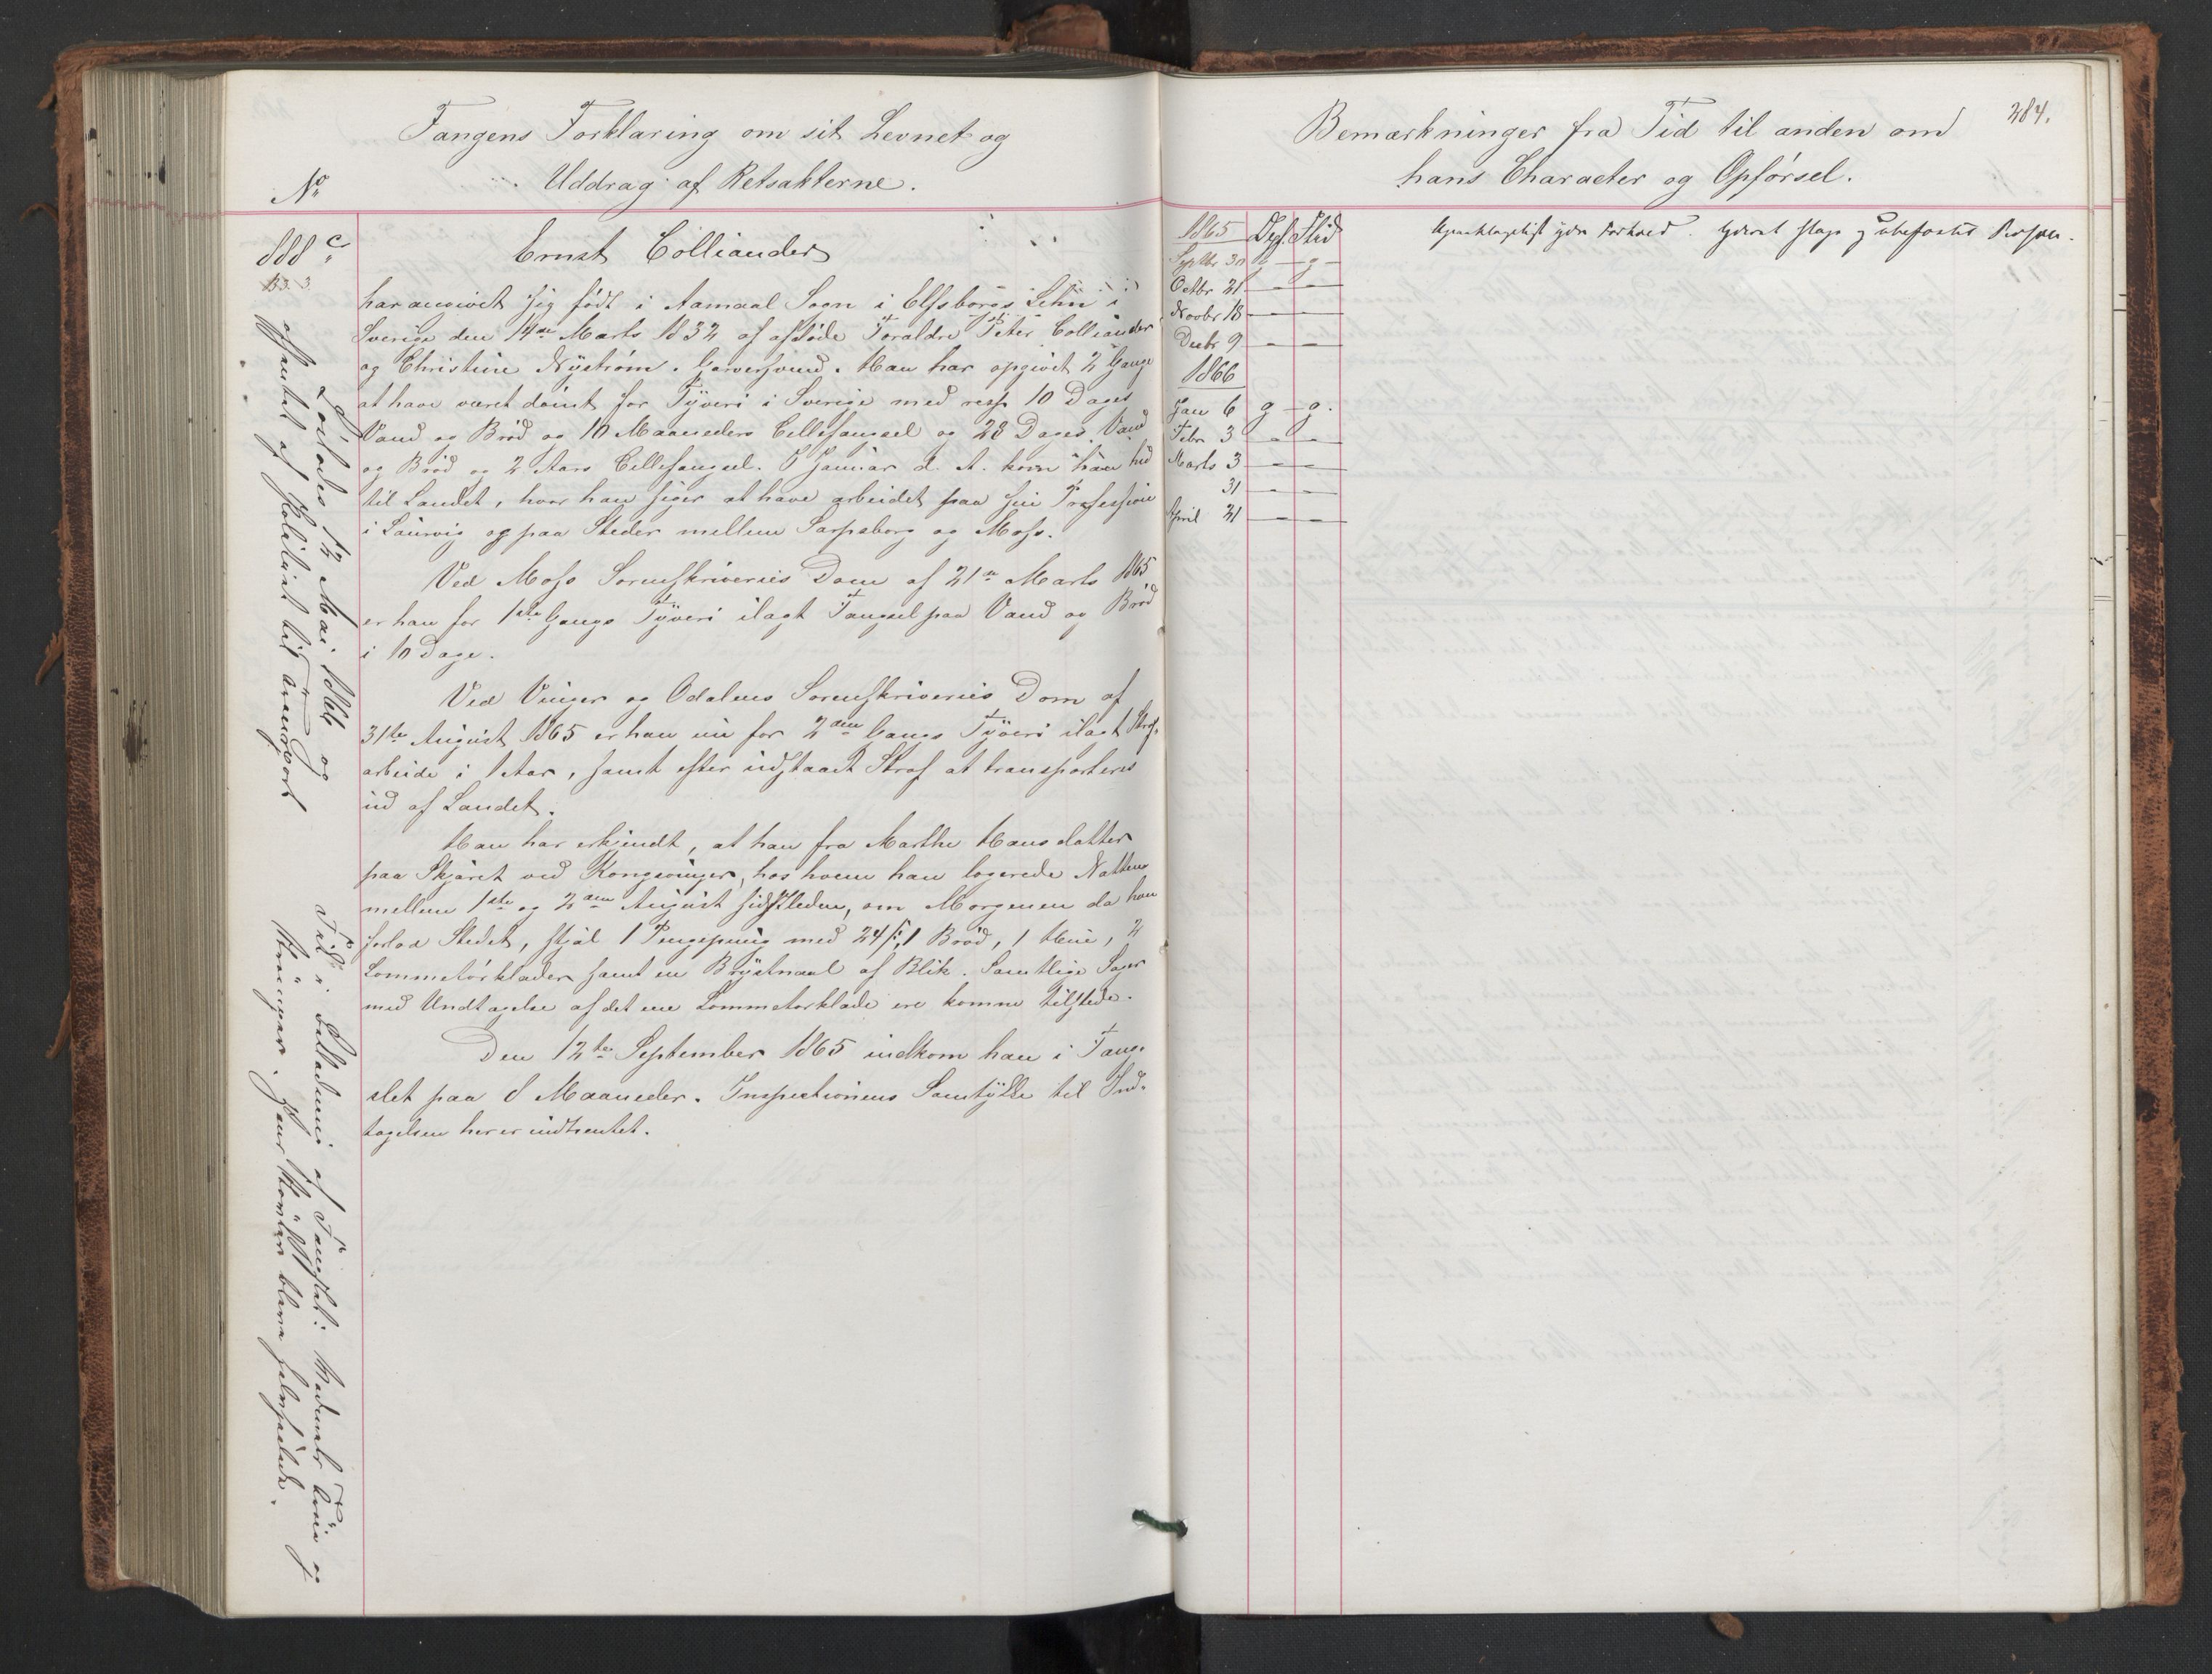 Fangens Forklaring om sit Levnet og
Uddrag af Retsakterne.
No
888 c.
B. 3. 3
Ernst Colliander
har angivet sig født i Aamaal Sogn i Elfsborgs Lehn i
Sverige den 14de Marts 1832 af afdøde Forældre Peter Colliander
og Christine Nystrøm. Garversvend. Han har opgivet 2 Gange
at have været dømt for Tyveri i Sverige med resp. 10 Dages
Vand og Brød og 10 Maaneders Cellefængsel og 28 Dages Vand
og Brød og 2 Aars Cellefængsel. I Januar d. A. kom han hid
til Landet, hvor han siger at have arbeidet paa sin Profession
i Laurvig og paa Steder mellem Sarpsborg og Moss.
Ved Moss Sorenskriveries Dom af 21de Marts 1865
er han for 1ste Gangs Tyveri ilagt Fængsel paa Vand og Brød
i 10 Dage.
Ved Vinger og Odalens Sorenskriveries Dom af
31te August 1865 er han nu for 2den Gangs Tyveri ilagt Straf-
arbeide i 1 Aar, samt efter udstaaet Straf at transporteres
ud af Landet.
Han har erkjendt, at han fra Marthe Hansdatter
paa Skjæret ved Kongsvinger, hos hvem han logerede Natten
mellem 1ste og 2den August sidstleden, om Morgenen da han
forlod Stedet, stjal 1 Pengepung med 24 ß, 1 Brød, 1 Hue, 2
Lommetørklæder samt en Brystnaal af Blik. Samtlige Sager
med Undtagelse af det ene Lommetørklæde ere komne tilstede.
Den 12te September 1865 indkom han i Fæng-
slet paa 8 Maaneder. Inspectionens Samtykke til Ind-
tagelsen her er indhentet.
Løslades 12 Mai 1866 og
afhentet af Politiet til Transport
Fik i Beklædning af Fængslet: Vadmels Trøie og
Bemærkninger fra Tid til anden om
hans Character og Opførsel.
284.
1865 Opf. Flid
Septbr 30 g g
Octbr 21 — —
Novbr 18 — —
Decbr 9 — —
1866
Jan 6 g g.
Febr 3 — —
Marts 3 — —
31 — —
April 21 — —
Upaaklageligt ydre Forhold. Yderst slap og ubefæstet Person.